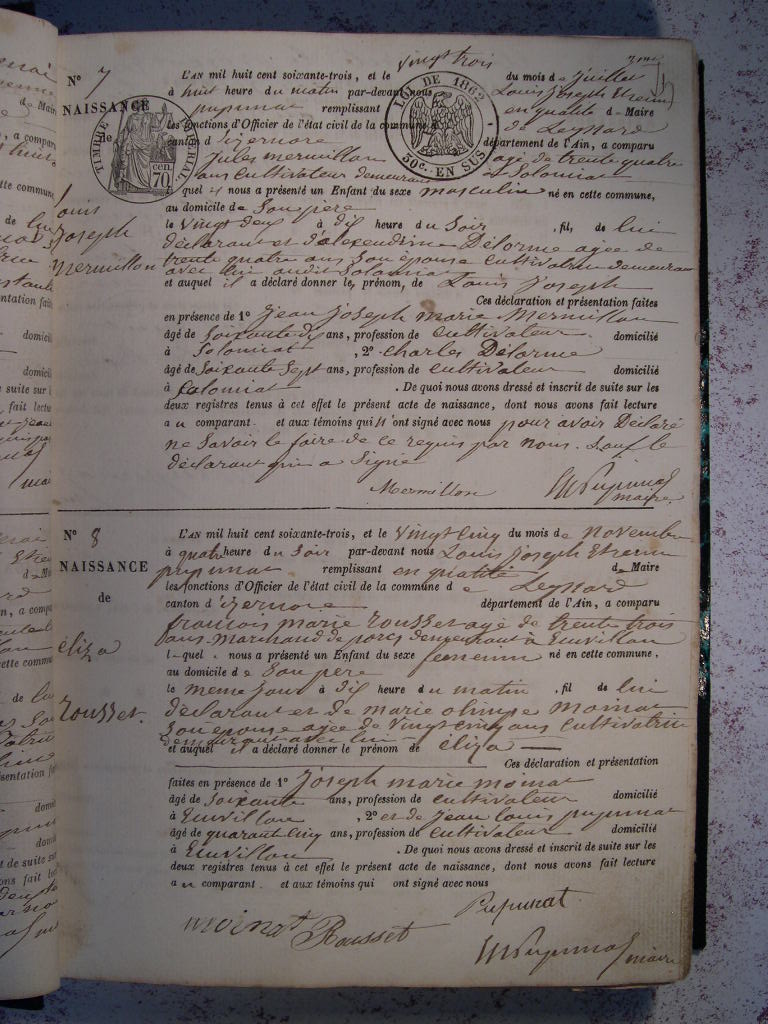 N° 7
NAISSANCE
de
Louis
Joseph
Mermillon
TIMBRE IMPÉRIAL
70 cen
LOI DE 1862
50c. EN SUS
L'AN mil huit cent soixante-trois, et le vingt trois du mois de Juillet
à huit heure du matin par-devant nous Louis Joseph Etienne
pupunat remplissant en qualité de Maire
les fonctions d'Officier de l'état civil de la commune de Leyssard
canton d'izernore département de l'Ain, a comparu
Jules mermillon agé de trente quatre
ans cultivateur demeurant à Solomiat
lequel nous a présenté un Enfant du sexe masculin né en cette commune,
au domicile de Son père
le vingt deux à dix heure du Soir , fil, de lui
déclarant et d'alexendrine Délorme agée de
trente quatre ans Son épouse cultivatrice demeurant
avec lui audit Solomiat
et auquel il a déclaré donner les prénom, de Louis Joseph
Ces déclaration et présentation faites
en présence de 1° Jean Joseph marie Mermillon
âgé de Soixante dix ans, profession de cultivateur domicilié
à Solomiat , 2° Charles Délorme
âgé de Soixante Sept ans, profession de cultivateur domicilié
à Solomiat . De quoi nous avons dressé et inscrit de suite sur les
deux registres tenus à cet effet le présent acte de naissance, dont nous avons fait lecture
au comparant. et aux témoins qui n'ont signé avec nous pour avoir Déclaré
ne Savoir le faire de ce requis par nous. Sauf le
déclarant qui a Signé
Mermillon
Pupunat
maire
N° 8
NAISSANCE
de
éliza
Rousset.
L'AN mil huit cent soixante-trois, et le Vingt Cinq du mois de novembre
à quatre heure du Soir par-devant nous Louis Joseph Etienne
pupunat remplissant en qualité de Maire
les fonctions d'Officier de l'état civil de la commune de Leyssard
canton d'izernore département de l'Ain, a comparu
francois marie rousset agé de trente trois
ans. marchand de porcs demeurant à Euvillon
lequel nous a présenté un Enfant du sexe feminin né en cette commune,
au domicile de Son père
le meme jour à dix heure du matin , fil de lui
déclarant et de marie olimpe moinat
Son épouse agée de vingt cinq ans cultivatrice
demeurant avec lui
et auquel il a déclaré donner le prénom de éliza
Ces déclaration et présentation
faites en présence de 1° Joseph marie moinat
âgé de Soixante ans, profession de cultivateur domicilié
à Euvillon , 2° et de Jean Louis pupunat
âgé de quarante cinq ans, profession de cultivateur domicilié
à Euvillon . De quoi nous avons dressé et inscrit de suite sur les
deux registres tenus à cet effet le présent acte de naissance, dont nous avons fait lecture
au comparant. et aux témoins qui ont signé avec nous
Pupunat
moinat Rousset
Pupunat maire